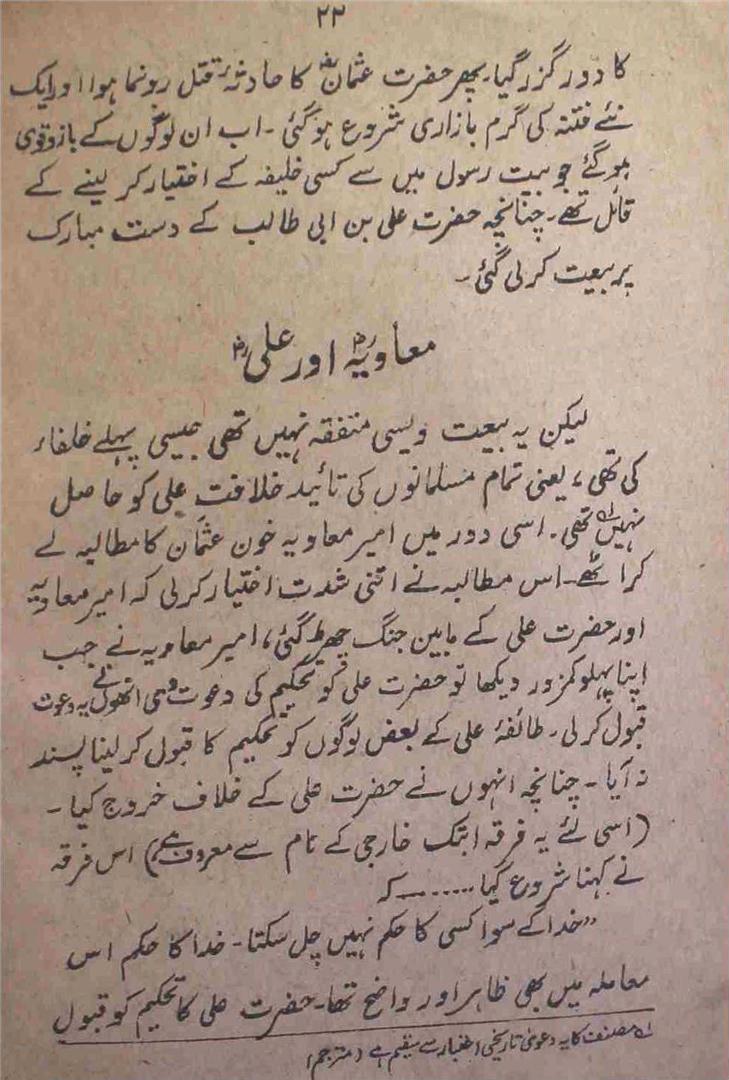 ۲۲
کا دور گزر گیا۔ پھر حضرت عثمانؓ کا حادثۂ قتل رونما ہوا اور ایک
نئے فتنہ کی گرم بازاری شروع ہو گئی۔ اب ان لوگوں کے بازو قوی
ہو گئے جو بیت رسول میں سے کسی خلیفہ کے اختیار کر لینے کے
قائل تھے۔ چنانچہ حضرت علی بن ابی طالب کے دست مبارک
پر بیعت کر لی گئی۔
معاویہؓ اور علیؓ
لیکن یہ بیعت ویسی متفقہ نہیں تھی جیسی پہلے خلفاء
کی تھی، یعنی تمام مسلمانوں کی تائید خلافت علی کو حاصل
نہیں تھی۔ لہ اسی دور میں امیر معاویہ خون عثمان کا مطالبہ لے
کر اٹھے۔ اس مطالبہ نے اتنی شدت اختیار کر لی کہ امیر معاویہ
اور حضرت علی کے مابین جنگ چھڑ گئی، امیر معاویہ نے جب
اپنا پہلو کمزور دیکھا تو حضرت علی کو تحکیم کی دعوت دی انھوں نے یہ دعوت
قبول کر لی۔ طائفۂ علی کے بعض لوگوں کو تحکیم کا قبول کر لینا پسند
نہ آیا۔ چنانچہ انہوں نے حضرت علی کے خلاف خروج کیا۔
(اسی لئے یہ فرقہ ابتک خارجی کے نام سے معروف ہے) اس فرقہ
نے کہنا شروع کیا ...... کہ
"خدا کے سوا کسی کا حکم نہیں چل سکتا۔ خدا کا حکم اس
معاملہ میں بھی ظاہر اور واضح تھا۔ حضرت علی کا تحکیم کو قبول
لہ مصنف کا یہ دعویٰ تاریخی اعتبار سے سقیم ہے (مترجم)